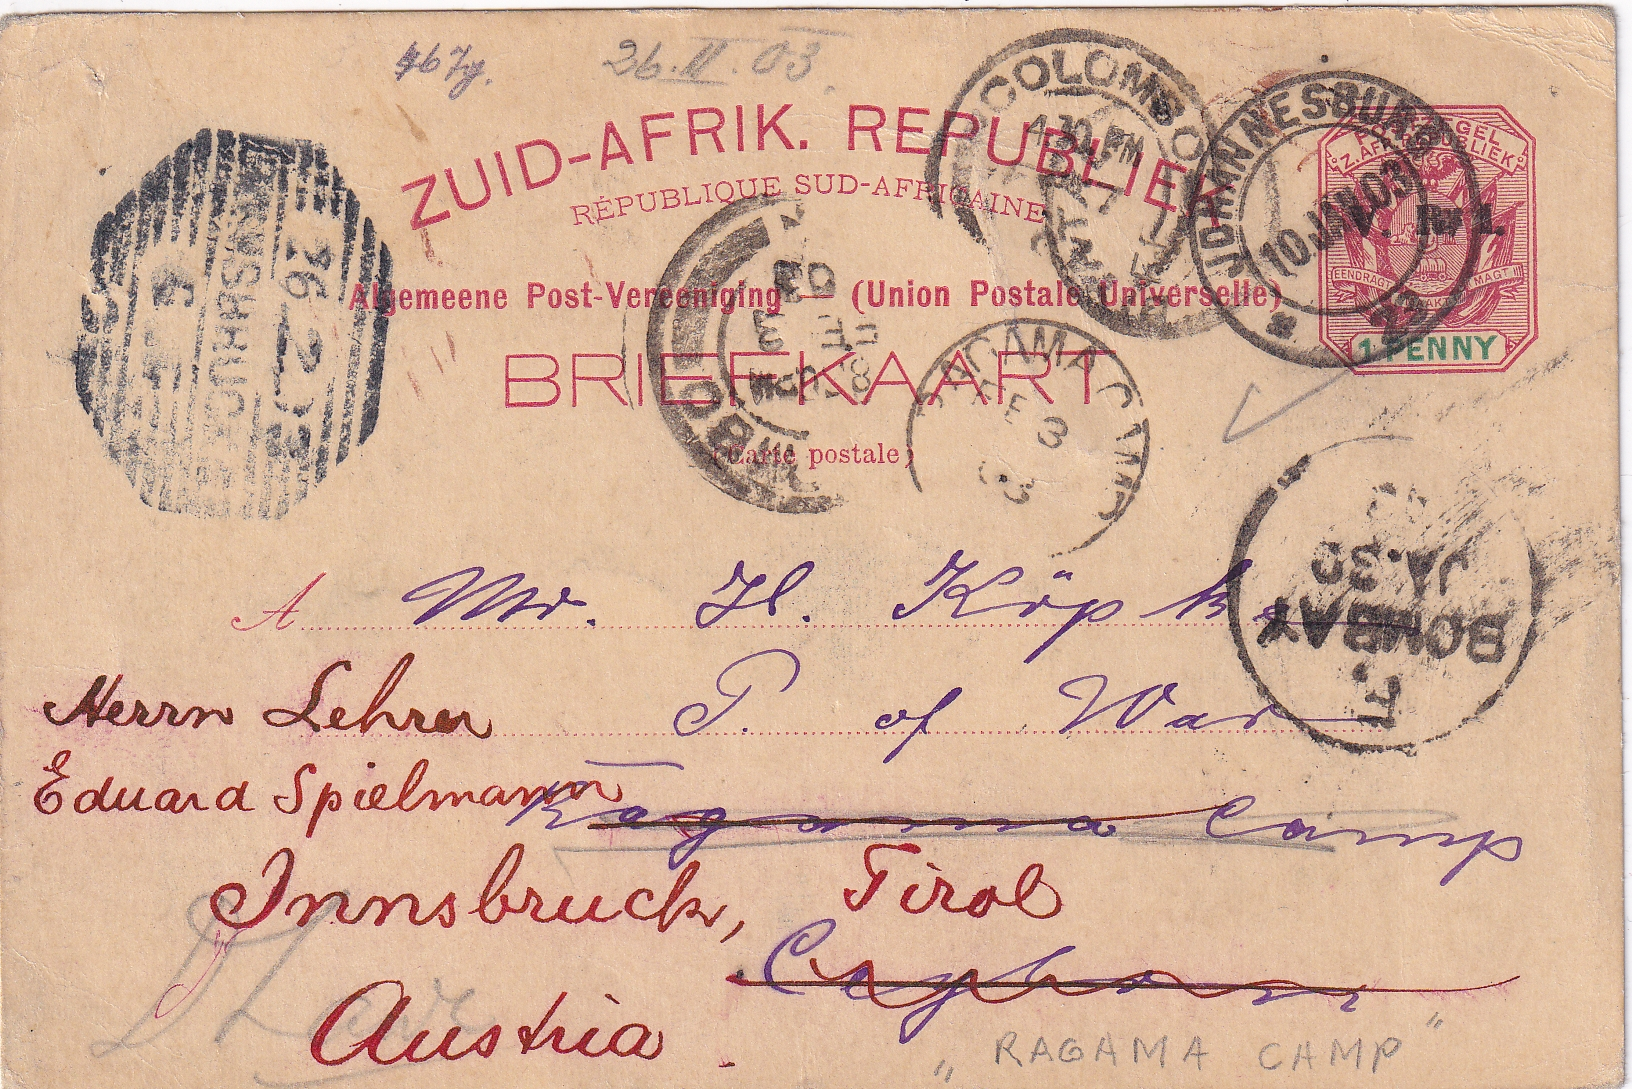 26.II.03
ZUID-AFRIK. REPUBLIEK
RÉPUBLIQUE SUD-AFRICAINE
Algemeene Post-Vereeniging — (Union Postale Universelle)
BRIEFKAART
(Carte postale)
COLOMBO
4.30 PM
JOHANNESBURG
10 JAN 03
22
ZEGEL
Z. AFR. REPUBLIEK
EENDRAGT MAAKT MAGT
1 PENNY
26 2 03
RAGAMA CAMP
FE 3
03
BOMBAY
JA·30
F.
A Mr. H. Köpke
P. of War
Ragama Camp
Ceylon
Herrn Lehrer
Eduard Spielmann
Innsbruck, Tirol
Austria
„RAGAMA CAMP"